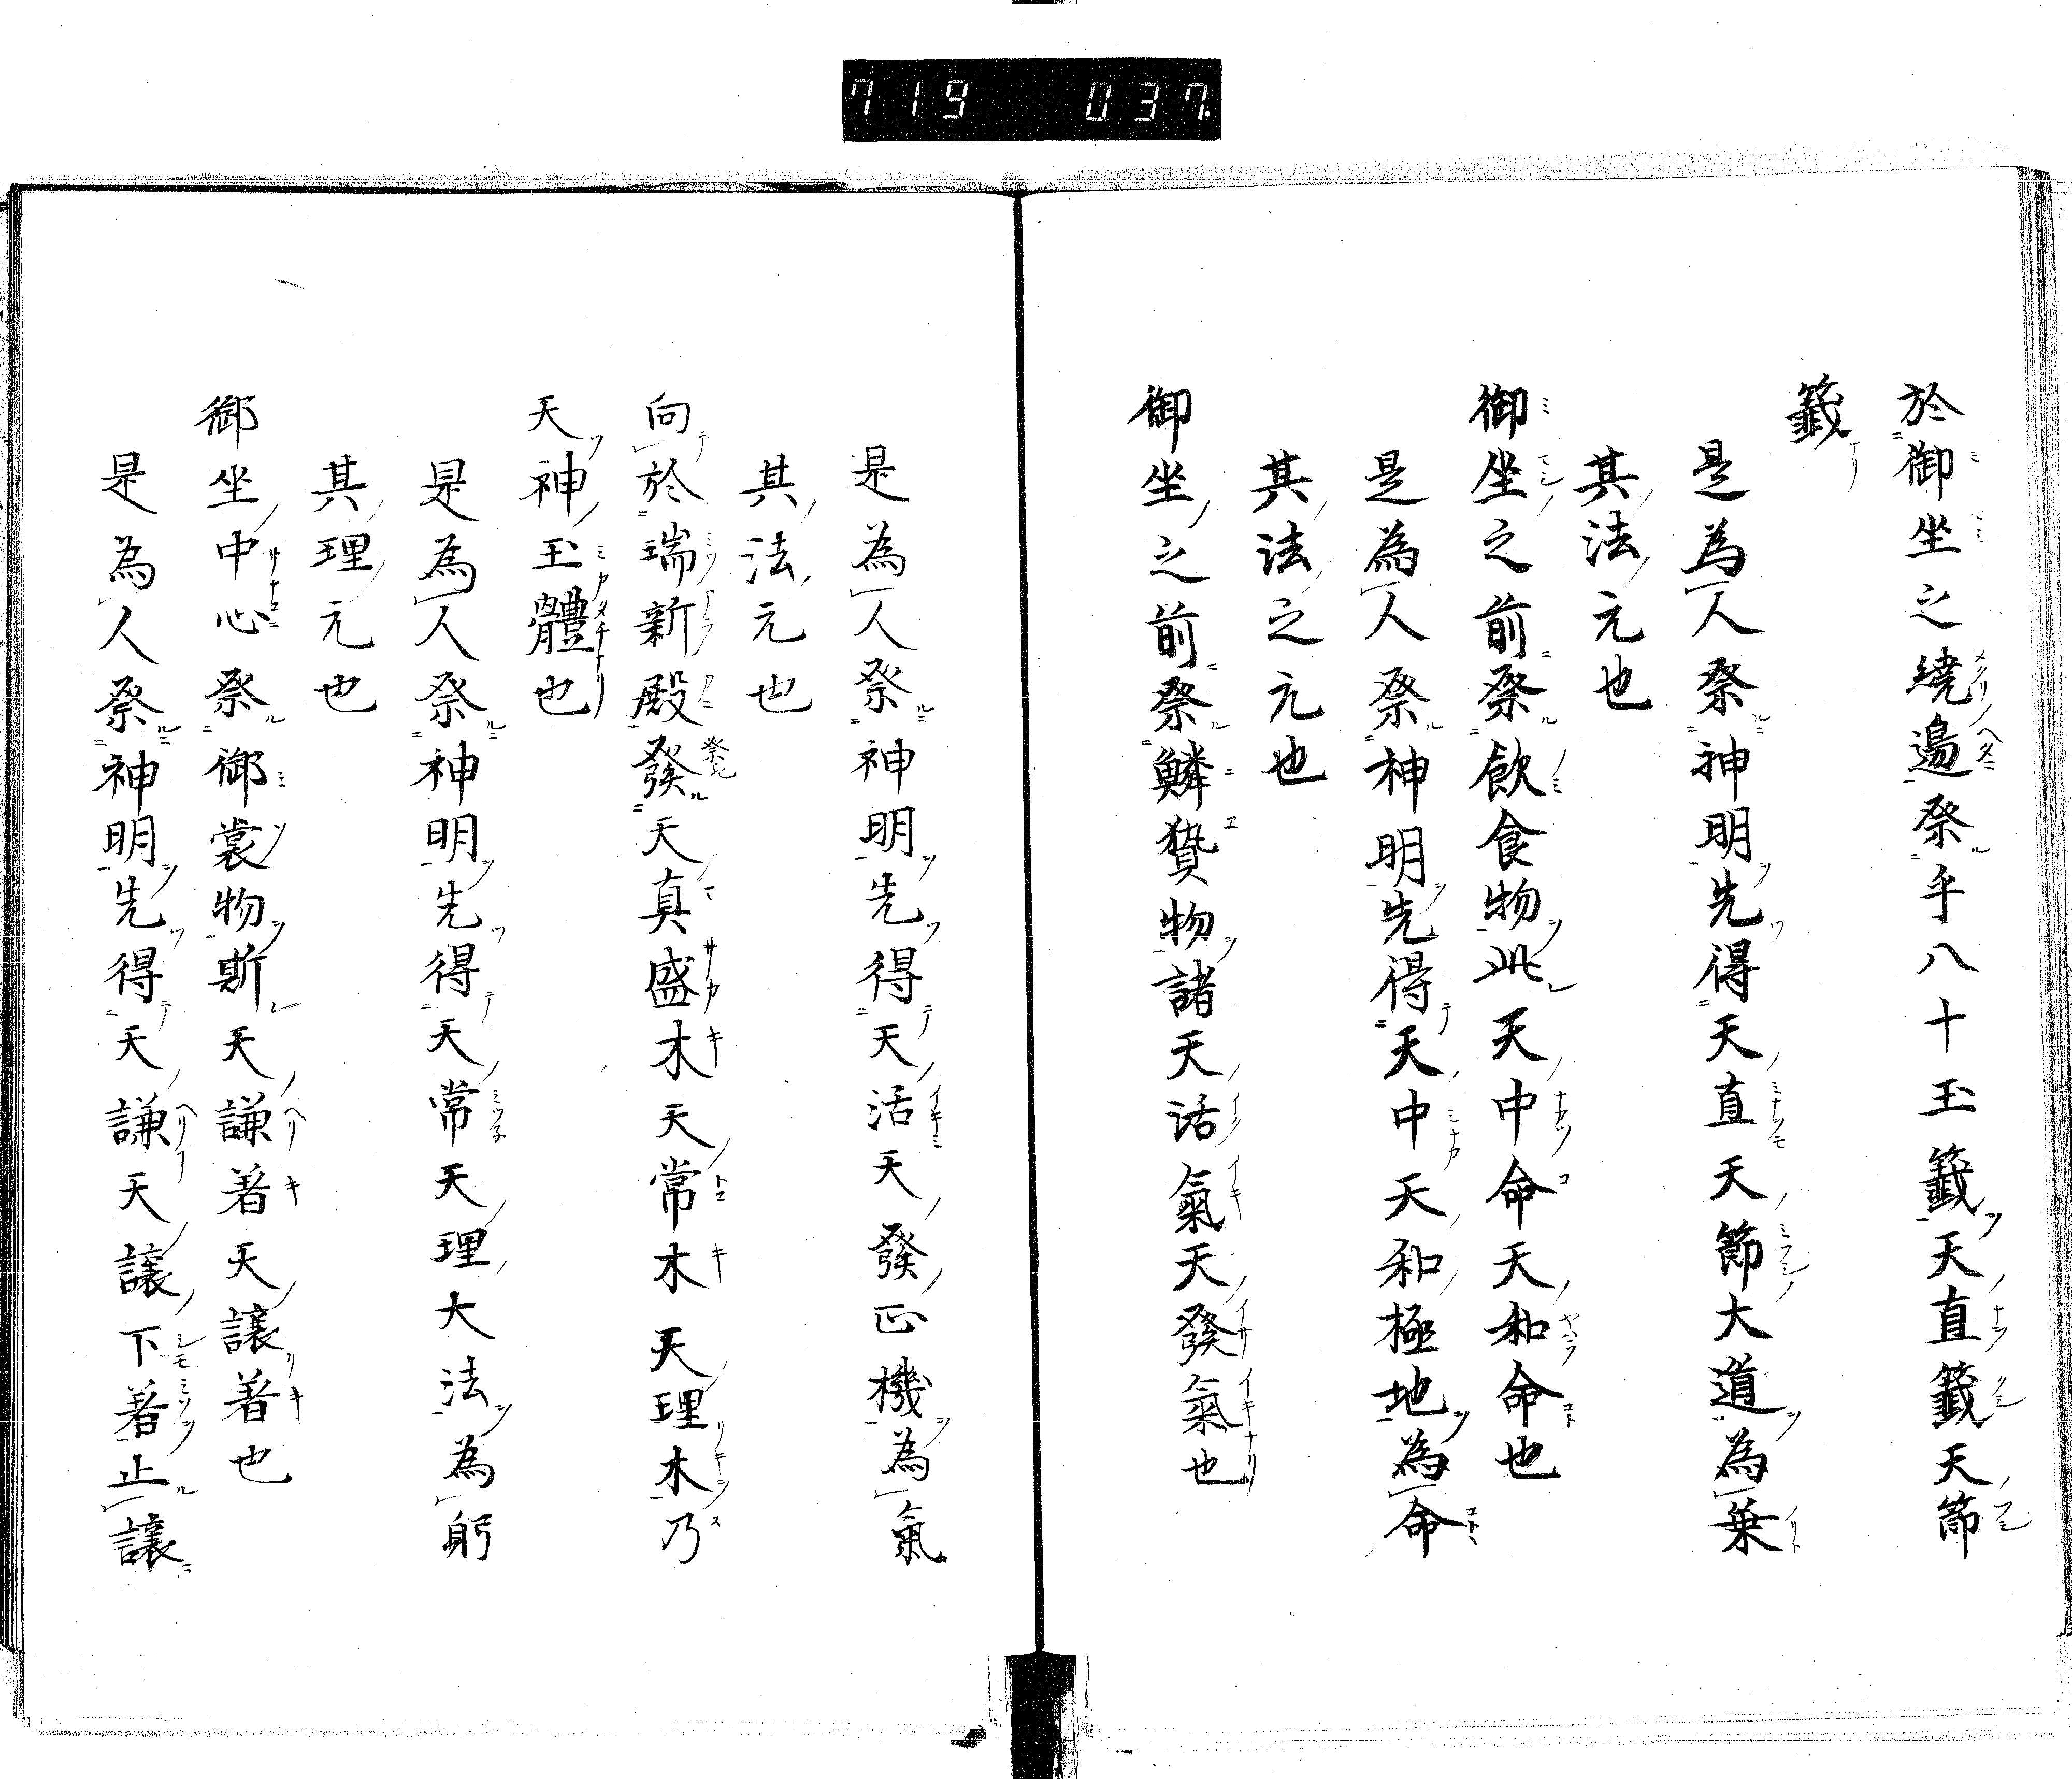 719 037
於御坐之繞邊祭乎八十玉籤天直籤天節
籤
是為人祭神明先得天直天節大道為乗
其法元也
御坐之前祭飲食物此天中命天和命也
是為人祭神明先得天中天和極地為命
其法之元也
御坐之前祭鱗贄物諸天活氣天發氣也
是為人祭神明先得天活天發正機為氣
其法元也
向於瑞新殿發天真盛木天常木天理木乃
天神玉體也
是為人祭神明先得天常天理大法為躬
其理元也
御坐中心祭御裳物斯天謙著天讓著也
是為人祭神明先得天謙天讓下著止讓